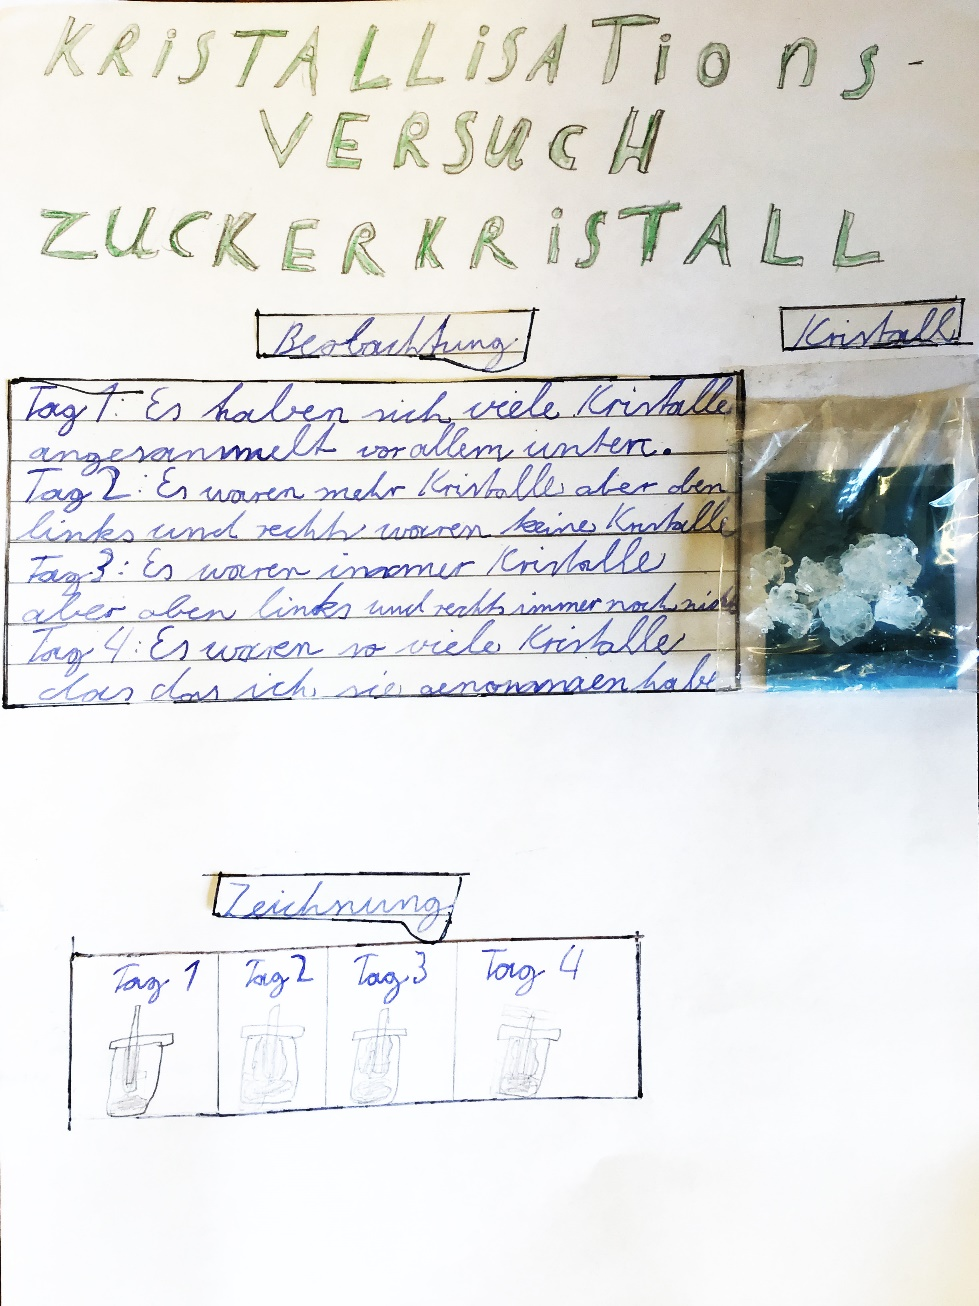 KRiSTALLiSATions-
VERSUCH
ZUCKERKRiSTALL
Beobachtung
Kristall
Tag 1: Es haben sich viele Kristalle
angesammelt vor allem unten.
Tag 2: Es waren mehr Kristalle aber oben
links und rechts waren keine Kristalle
Tag 3: Es waren immer Kristalle
aber oben links und rechts immer noch
Tag 4: Es waren so viele Kristalle
das das ich sie genommen habe
Zeichnung
Tag 1 Tag 2 Tag 3 Tag 4